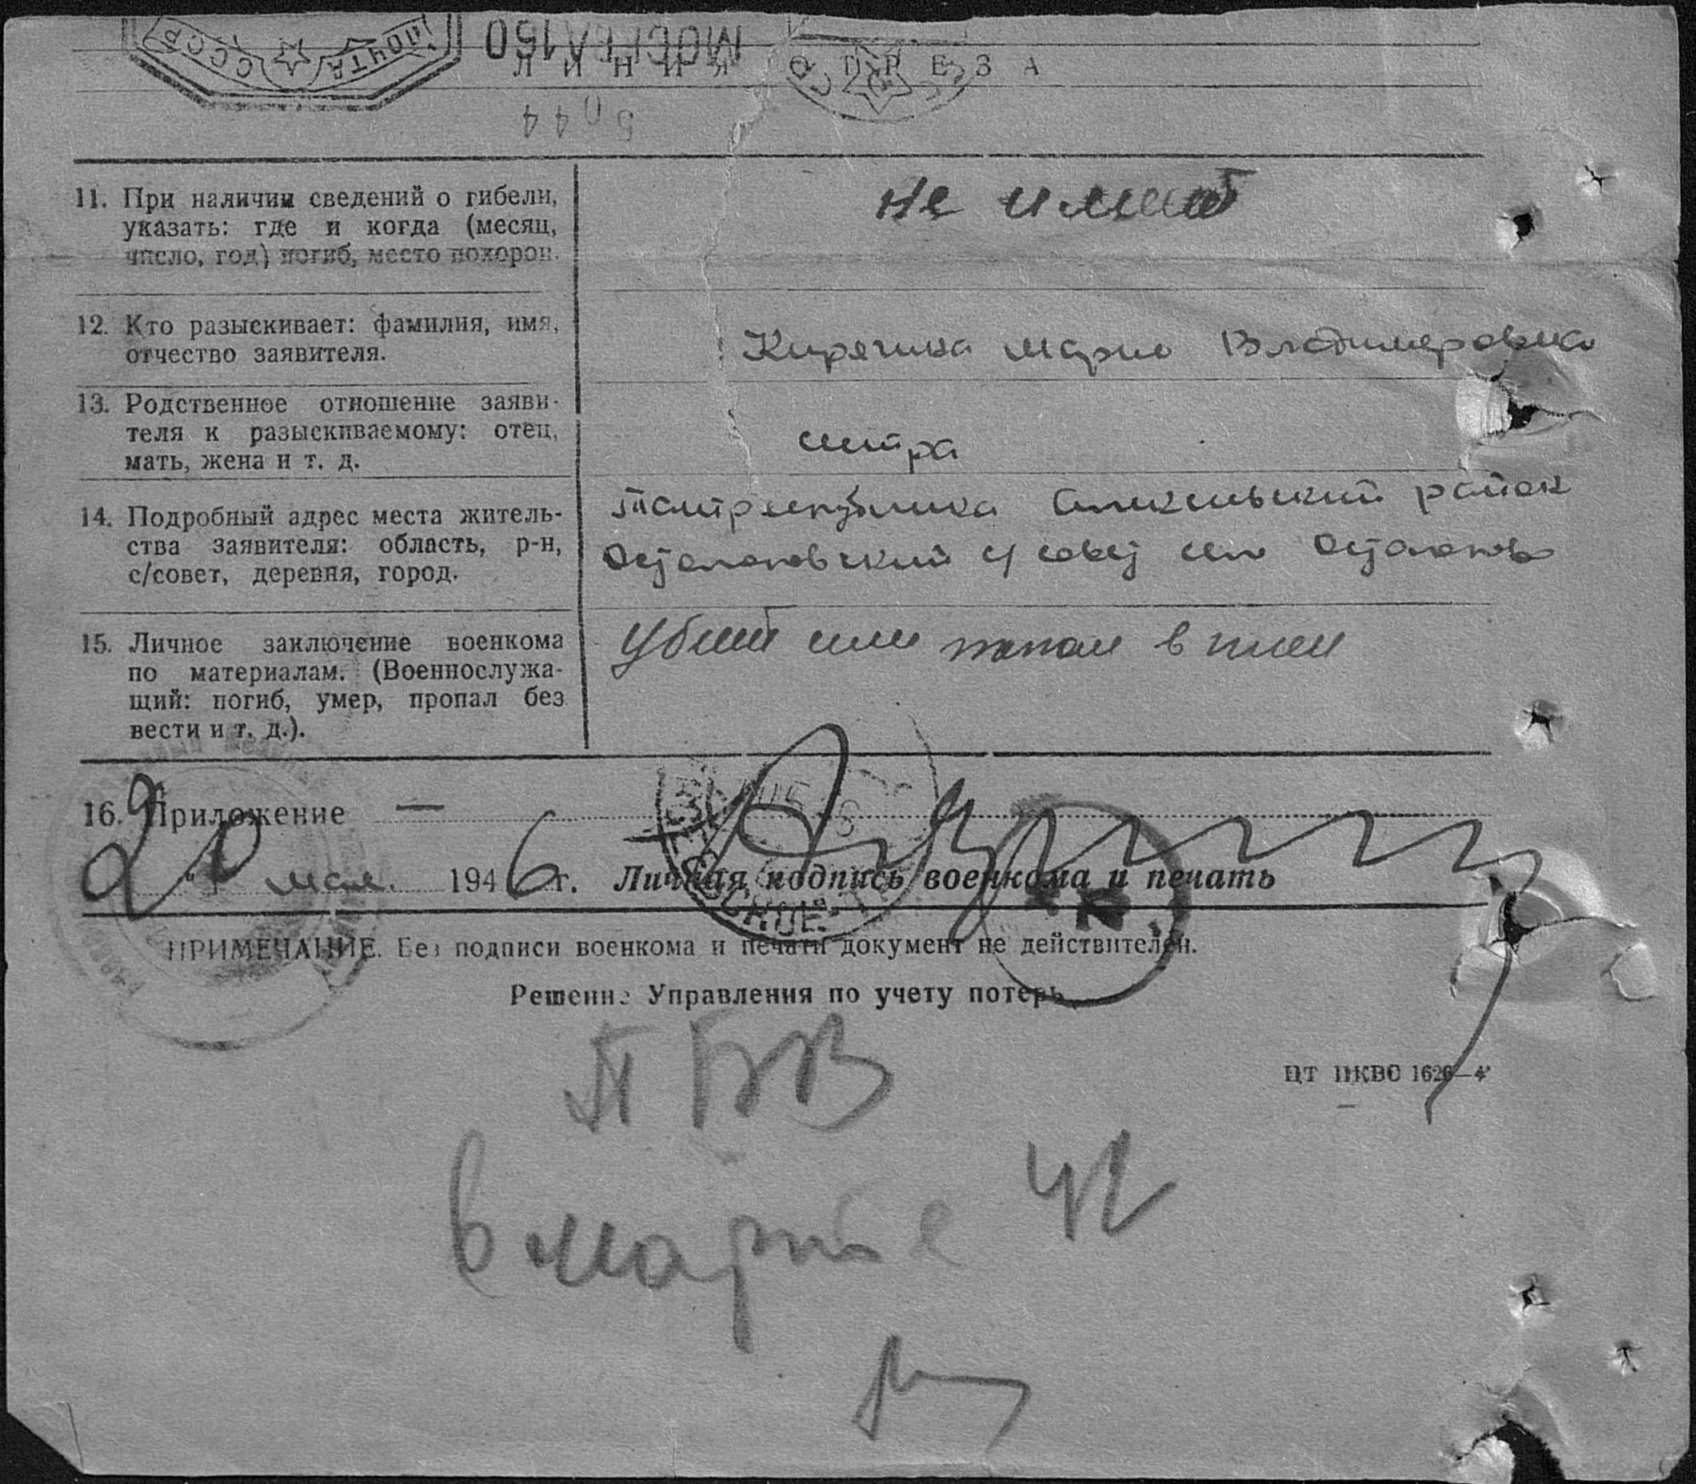 ПОЧТА СССР
МОСКВА 150
ЛИНИЯ ОТРЕЗА
5044
11. При наличии сведений о гибели,
указать: где и когда (месяц,
число, год) погиб, место похорон.
не имеет
12. Кто разыскивает: фамилия, имя,
отчество заявителя.
Кирягина Мария Владимеровна
13. Родственное отношение заяви-
теля к разыскиваемому: отец,
мать, жена и т. д.
14. Подробный адрес места житель-
ства заявителя: область, р-н,
с/совет, деревня, город.
Татреспублика район
с/совет село
15. Личное заключение военкома
по материалам. (Военнослужа-
щий: погиб, умер, пропал без
вести и т. д.).
Убит или попал в плен
16. Приложение —
20 мая 1946 г. Личная подпись военкома и печать
ПРИМЕЧАНИЕ. Без подписи военкома и печати документ не действителен.
Решение Управления по учету потерь
ПБВ
ЦТ НКВО 1626—4
в марте 42